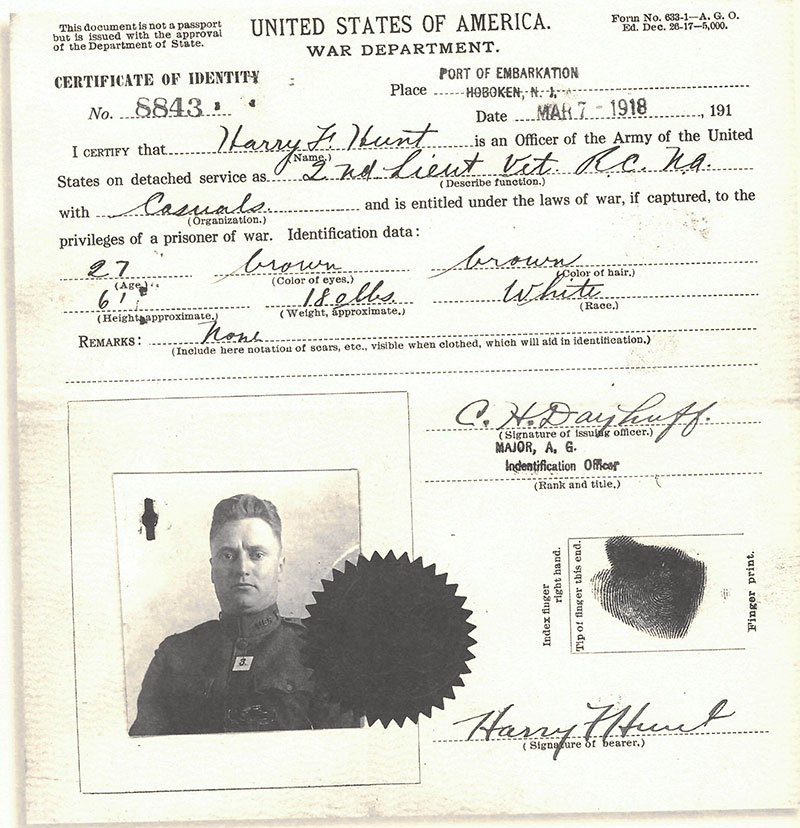 This document is not a passport
but is issued with the approval
of the Department of State.
UNITED STATES OF AMERICA.
WAR DEPARTMENT.
Form No. 633-1—A. G. O.
Ed. Dec. 26-17—5,000.
CERTIFICATE OF IDENTITY
No. 8843
Place PORT OF EMBARKATION
HOBOKEN, N. J.
Date MAR 7 - 1918, 191
I CERTIFY that Harry F. Hunt is an Officer of the Army of the United
(Name.)
States on detached service as 2nd Lieut Vet. R.C. Na.
(Describe function.)
with Casuals. and is entitled under the laws of war, if captured, to the
(Organization.)
privileges of a prisoner of war. Identification data:
27 brown brown
(Age.) (Color of eyes.) (Color of hair.)
6' 180lbs. White
(Height, approximate.) (Weight, approximate.) (Race.)
REMARKS: None
(Include here notation of scars, etc., visible when clothed, which will aid in identification.)
C. H. Dayhuff.
(Signature of issuing officer.)
MAJOR, A. G.
Indentification Officer
(Rank and title.)
Index finger
right hand.
Tip of finger this end.
Finger print.
3.
Harry F Hunt
(Signature of bearer.)